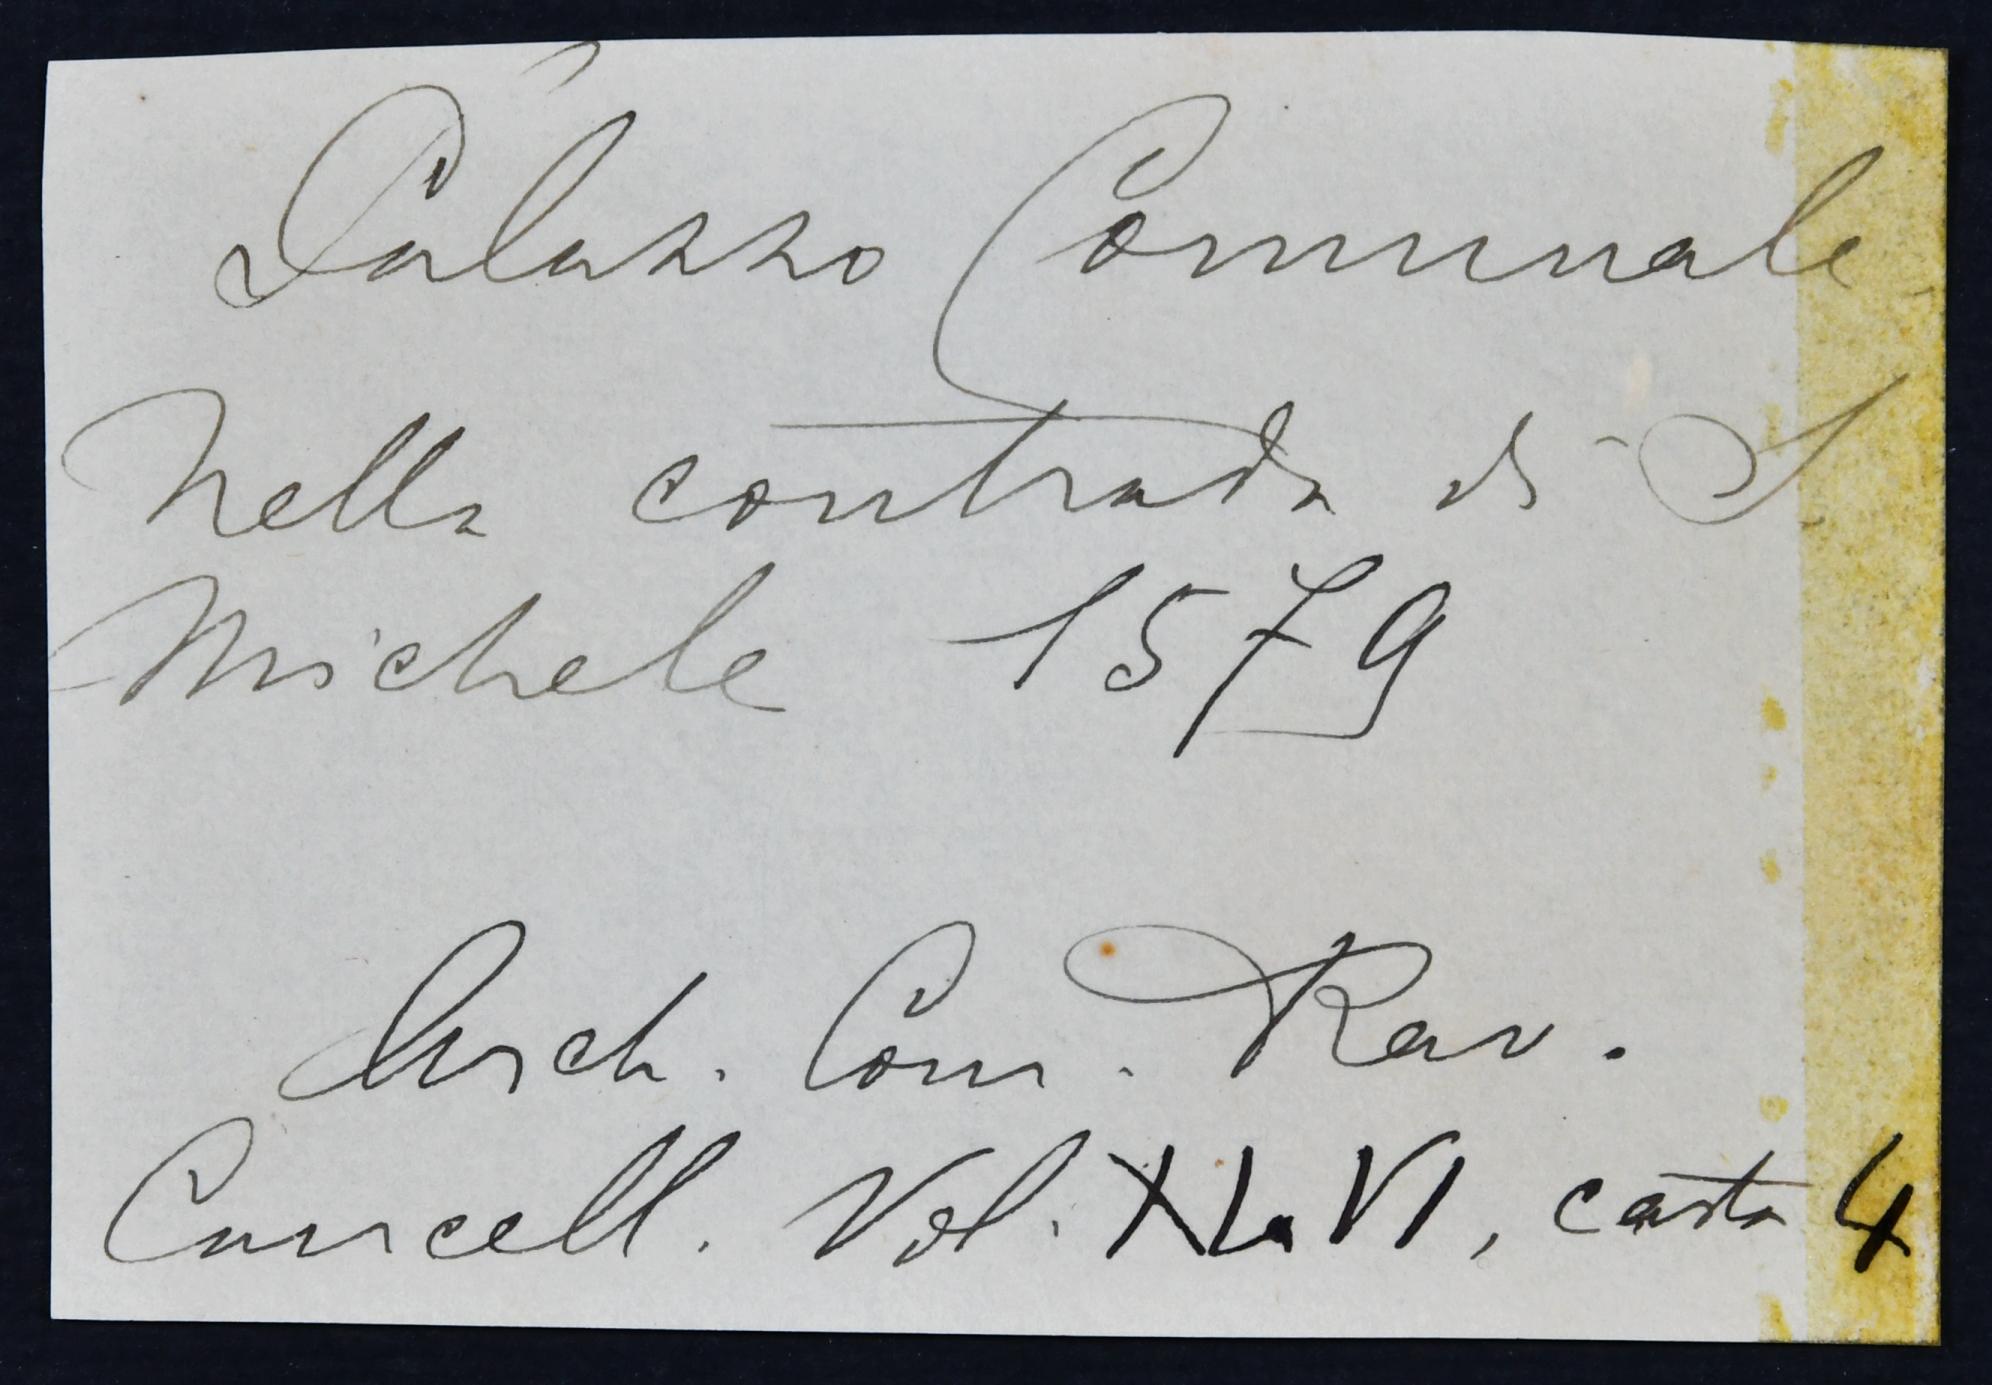 Palazzo Comunale.
Nella contrada di S.
Michele 1579
Arch. Com. Rav.
Cancell. Vol. XLVI, carta 4